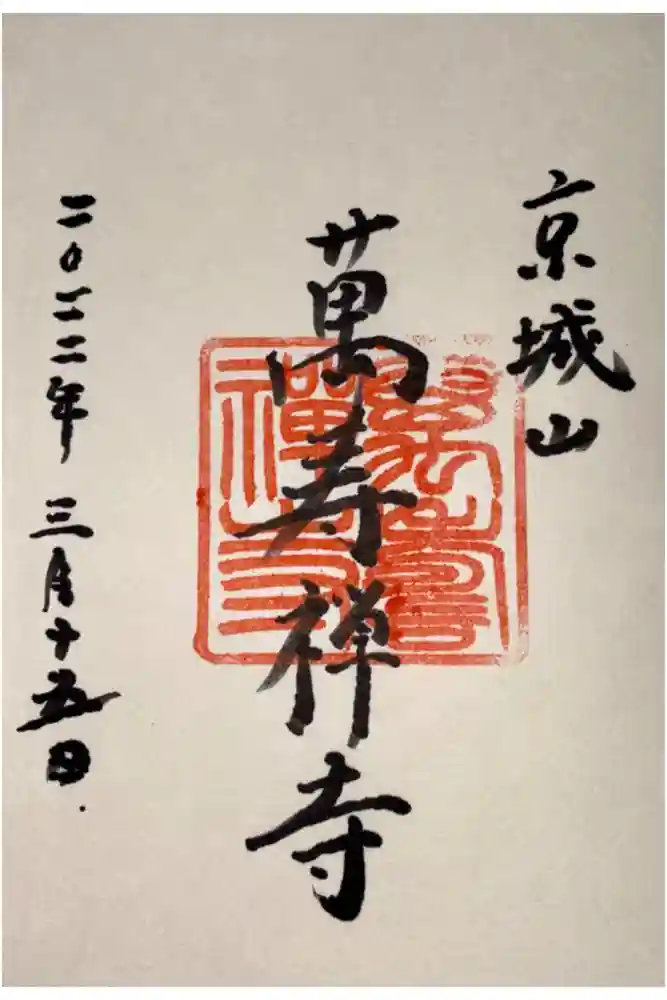 京城山
萬寿禅寺
萬壽
禪寺
二〇二二年 三月十五日.